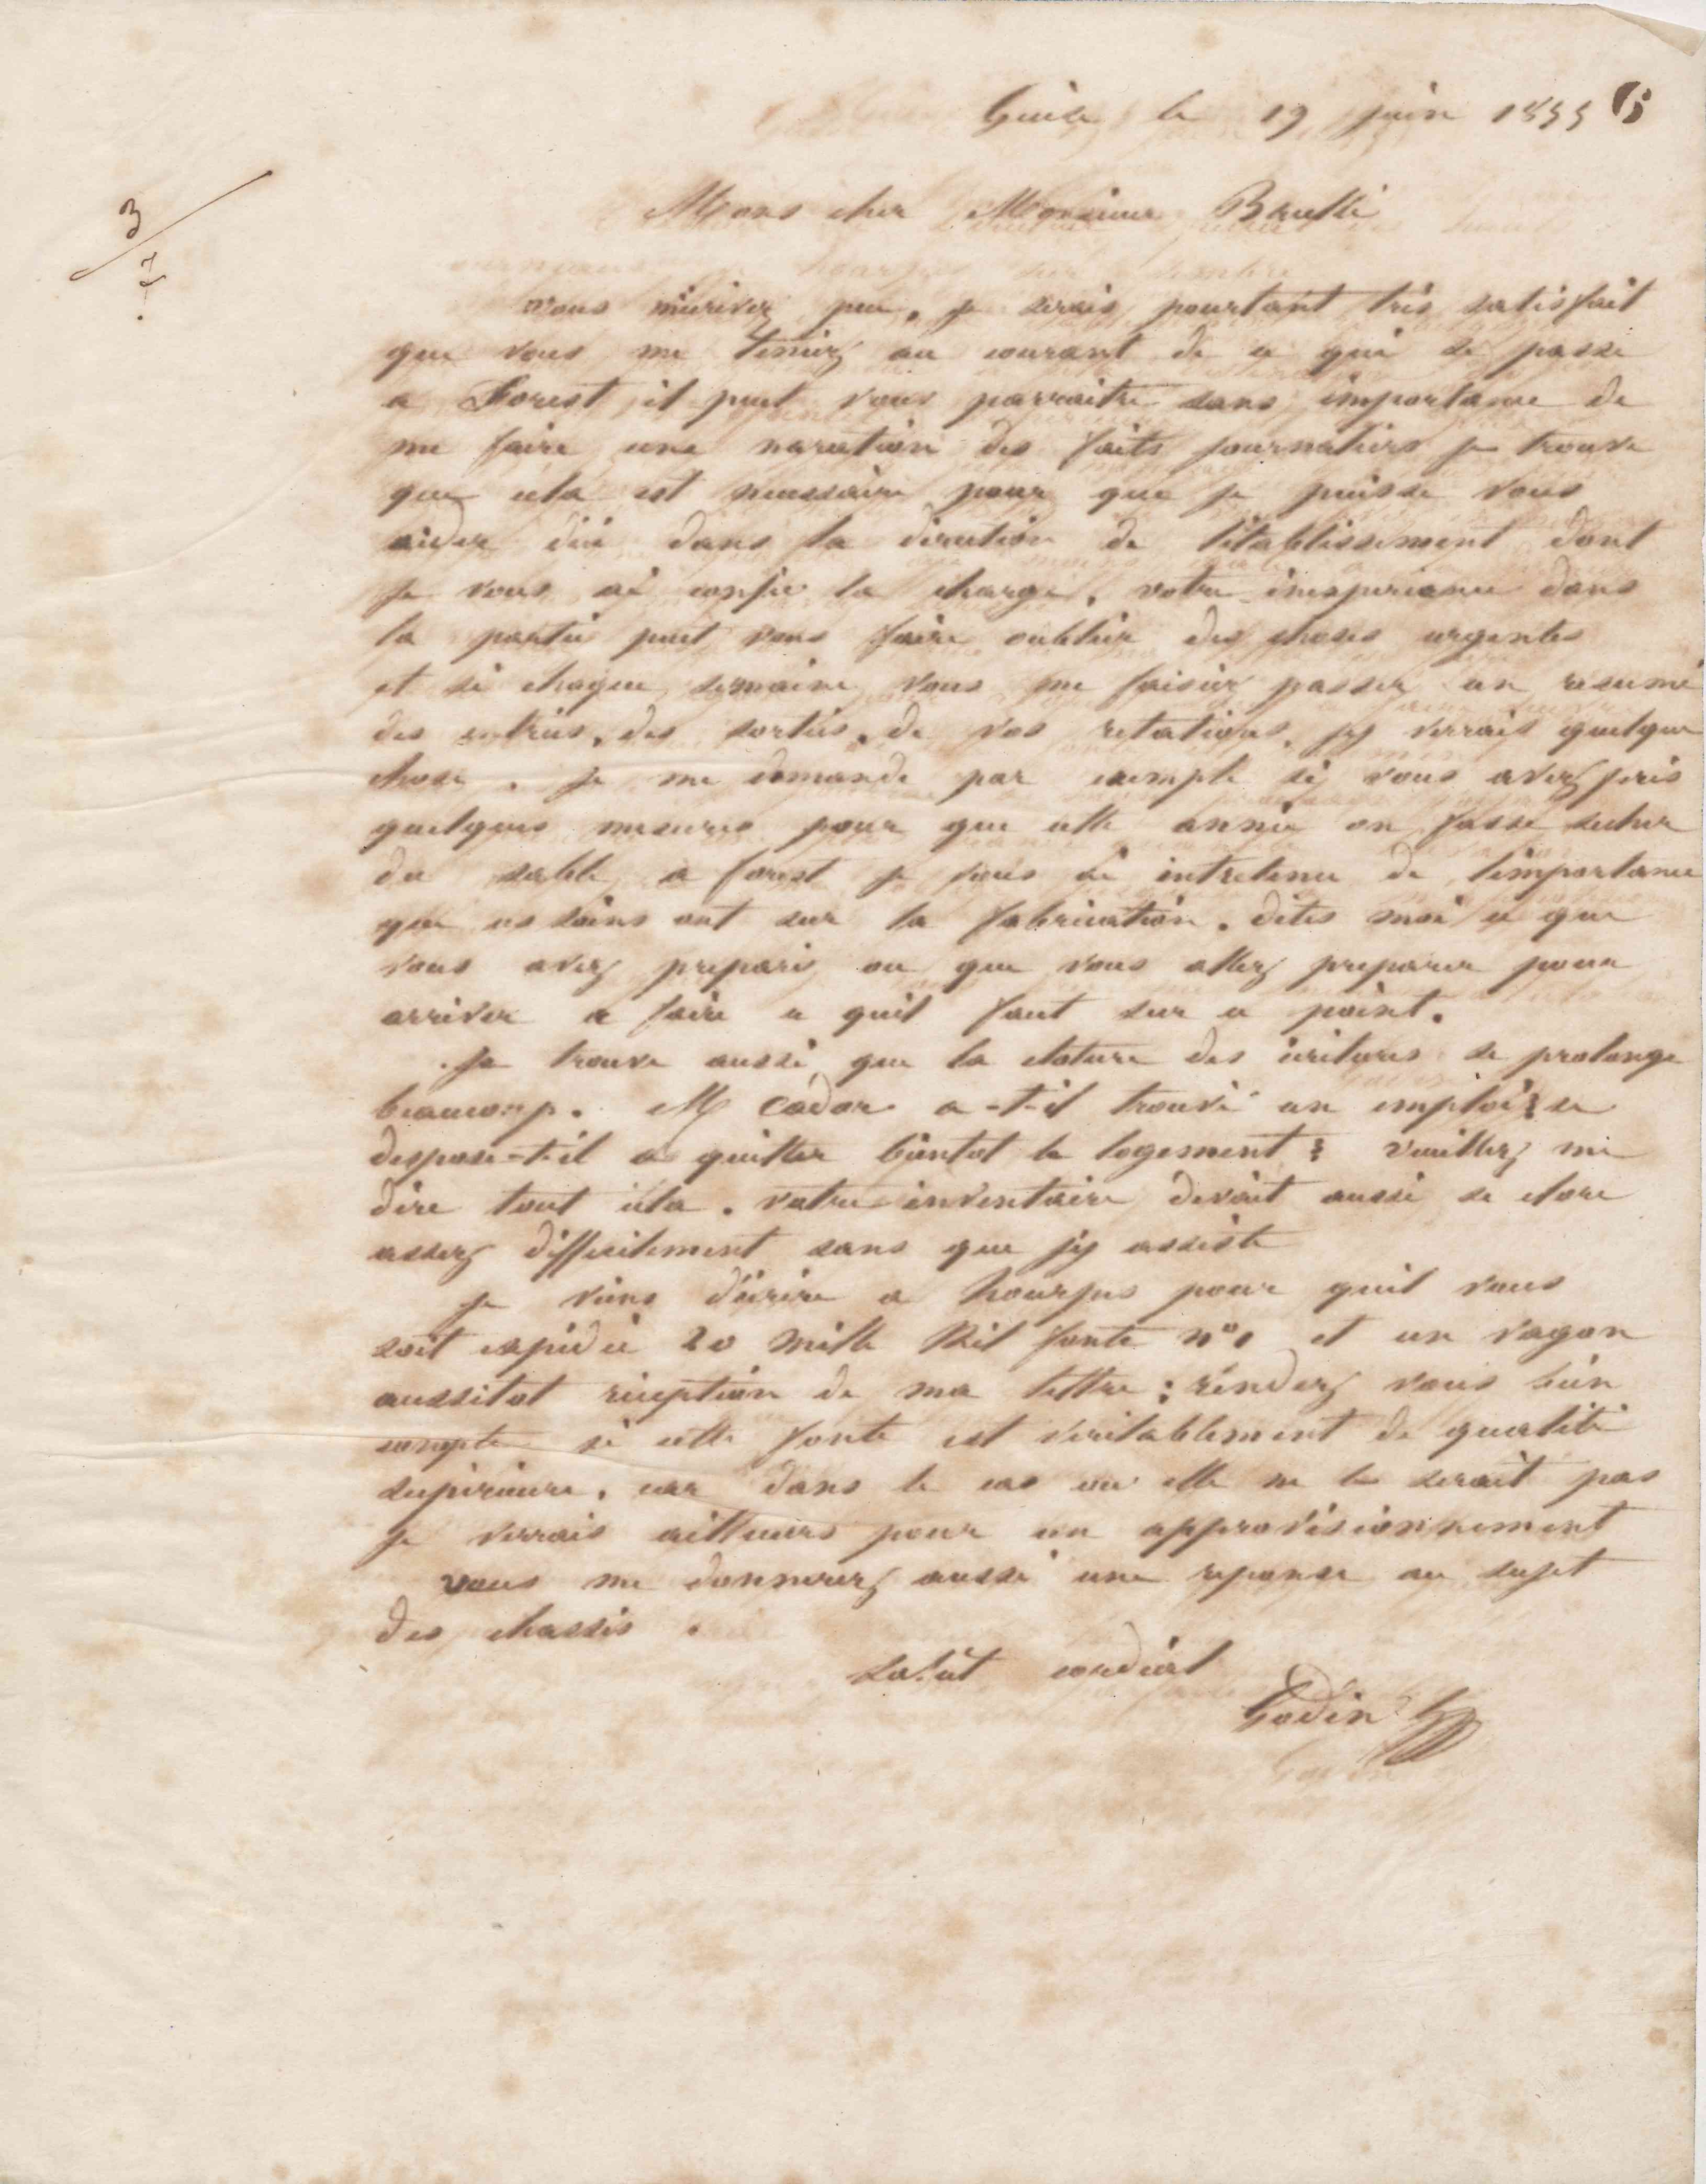 Guise le 19 juin 1855 6
3
7.
Mons cher Monsieur Brullé
vous mécrivez peu, je serais pourtant très satisfait
que vous me teniez au courant de ce qui se passe
a Forest il peut vous parraitre sans importance de
me faire une naration des faits journaliers je trouve
que cela est necessaire pour que je puisse vous
aider dici dans la direction de létablissement dont
je vous ai confié la charge, votre inexperiance dans
la partie peut vous faire oublier des choses urgentes
et si chaque semaine vous me faisiez passer un resumé
des entrées, des sorties, de vos relations, jy verrais quelque
chose. je me demande par exemple si vous avez pris
quelques mesures pour que cette année on fasse secher
du sable a forest je vous ai entretenu de limportance
que ces soins ont sur la fabrication. dites moi ce que
vous avez preparé ou que vous allez preparer pour
arriver a faire ce quil faut sur ce point.
Je trouve aussi que la cloture des écritures se prolonge
beaucoup. M Cador a-t-il trouvé un emploi? se
despose-t-il a quitter bientot le logement? veuillez me
dire tout cela. votre inventaire devait aussi se clore
assez difficilement sans que jy assiste
Je viens décrire a hourpes pour quil vous
soit expédié 20 mille Kil fonte n° 1 et un vagon
aussitot réception de ma lettre; réndez vous bien
compte si cette fonte est veritablement de qualité
supérieure, car dans le cas ou elle ne le serait pas
je verrais ailleurs pour un approvisionnement
vous me donnerez aussi une reponse au sujet
des chassis.
Salut cordial
Godin